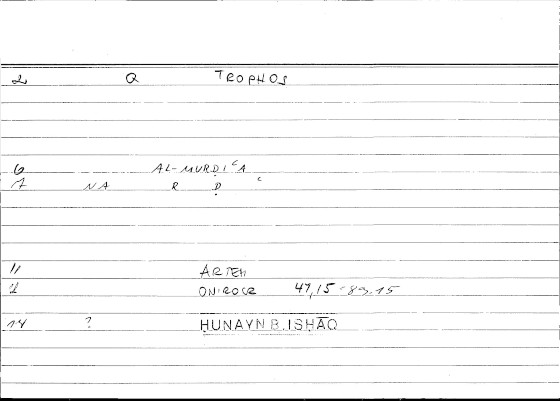 2 Q TROPHOS
6 AL-MURḌIʿA
7 NA R Ḍ ʿ
11 ARTEM
ONIROCR 47,15-89,15
14 ? ḤUNAYN B. ISḤĀQ